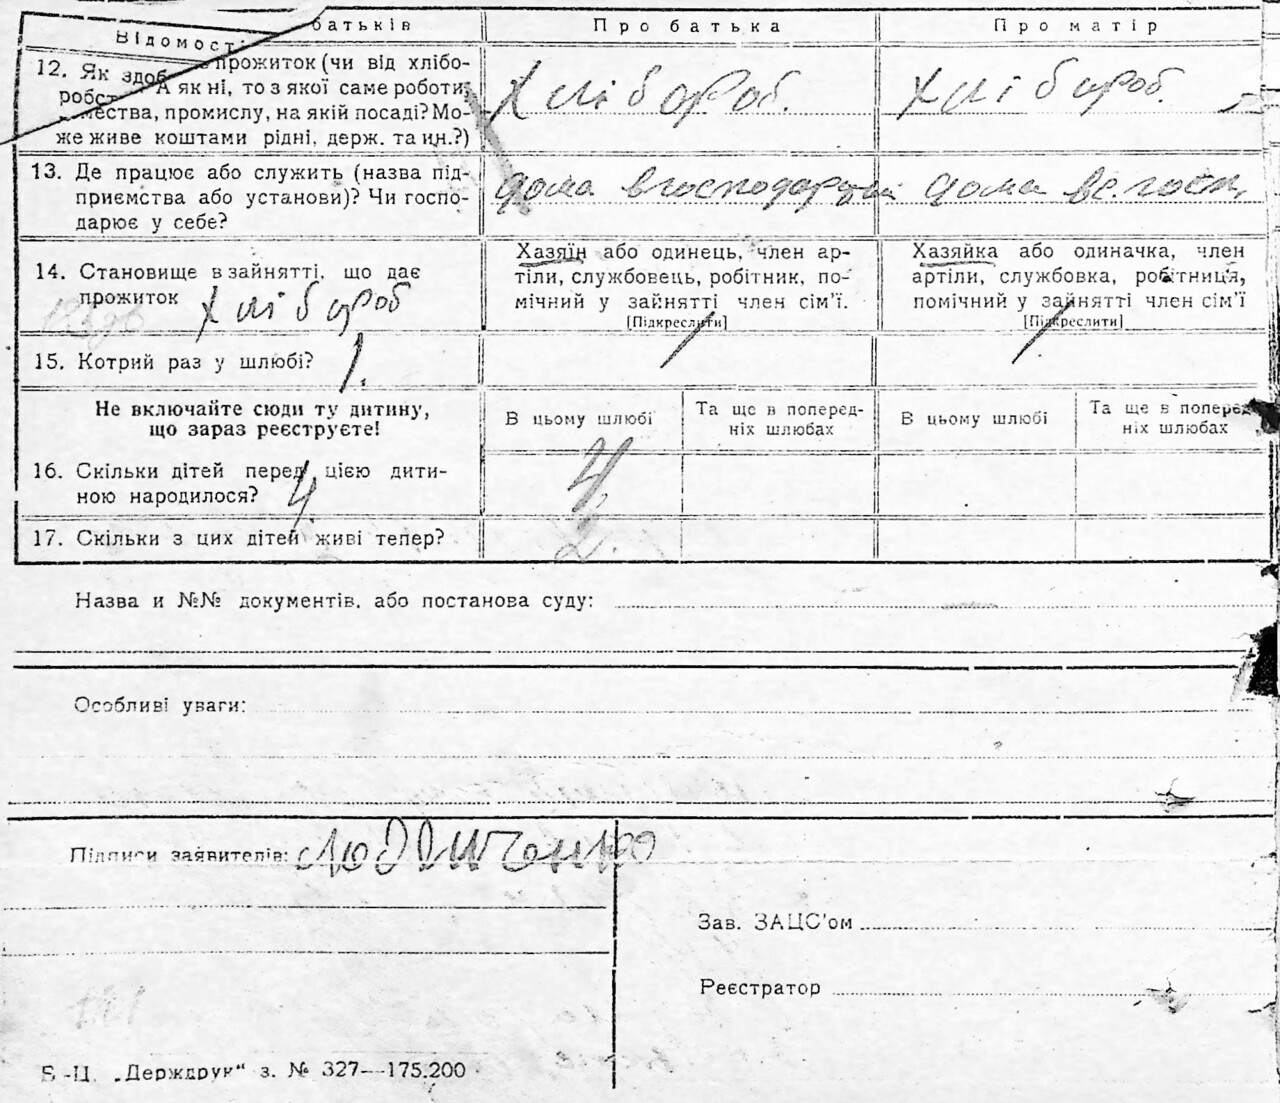 Відомості батьків
Про батька
Про матір
12. Як здоб прожиток (чи від хлібо-
робст А як ні, то з якої саме роботи,
мества, промислу, на якій посаді? Мо-
же живе коштами рідні, держ. та ин.?)
Хлібороб.
Хлібороб.
13. Де працює або служить (назва під-
приємства або установи)? Чи госпо-
дарює у себе?
дома в господарции
дома в с. госп.
14. Становище в зайнятті, що дає
прожиток
Хлібороб
Хазяїн або одинець, член ар-
тіли, службовець, робітник, по-
мічний у зайнятті член сім'ї.
[Підкреслити]
Хазяйка або одиначка, член
артіли, службовка, робітниця,
помічний у зайнятті член сім'ї
[Підкреслити]
15. Котрий раз у шлюбі?
1.
1
1
Не включайте сюди ту дитину,
що зараз реєструєте!
В цьому шлюбі
Та ще в поперед-
ніх шлюбах
В цьому шлюбі
Та ще в поперед-
ніх шлюбах
16. Скільки дітей перед цією дити-
ною народилося?
4
4
17. Скільки з цих дітей живі тепер?
2.
Назва и №№ документів, або постанова суду:
Особливі уваги:
Підписи заявителів:
Зав. ЗАЦС'ом
Реєстратор
Б.-Ц. „Держдрук" з. № 327—175.200